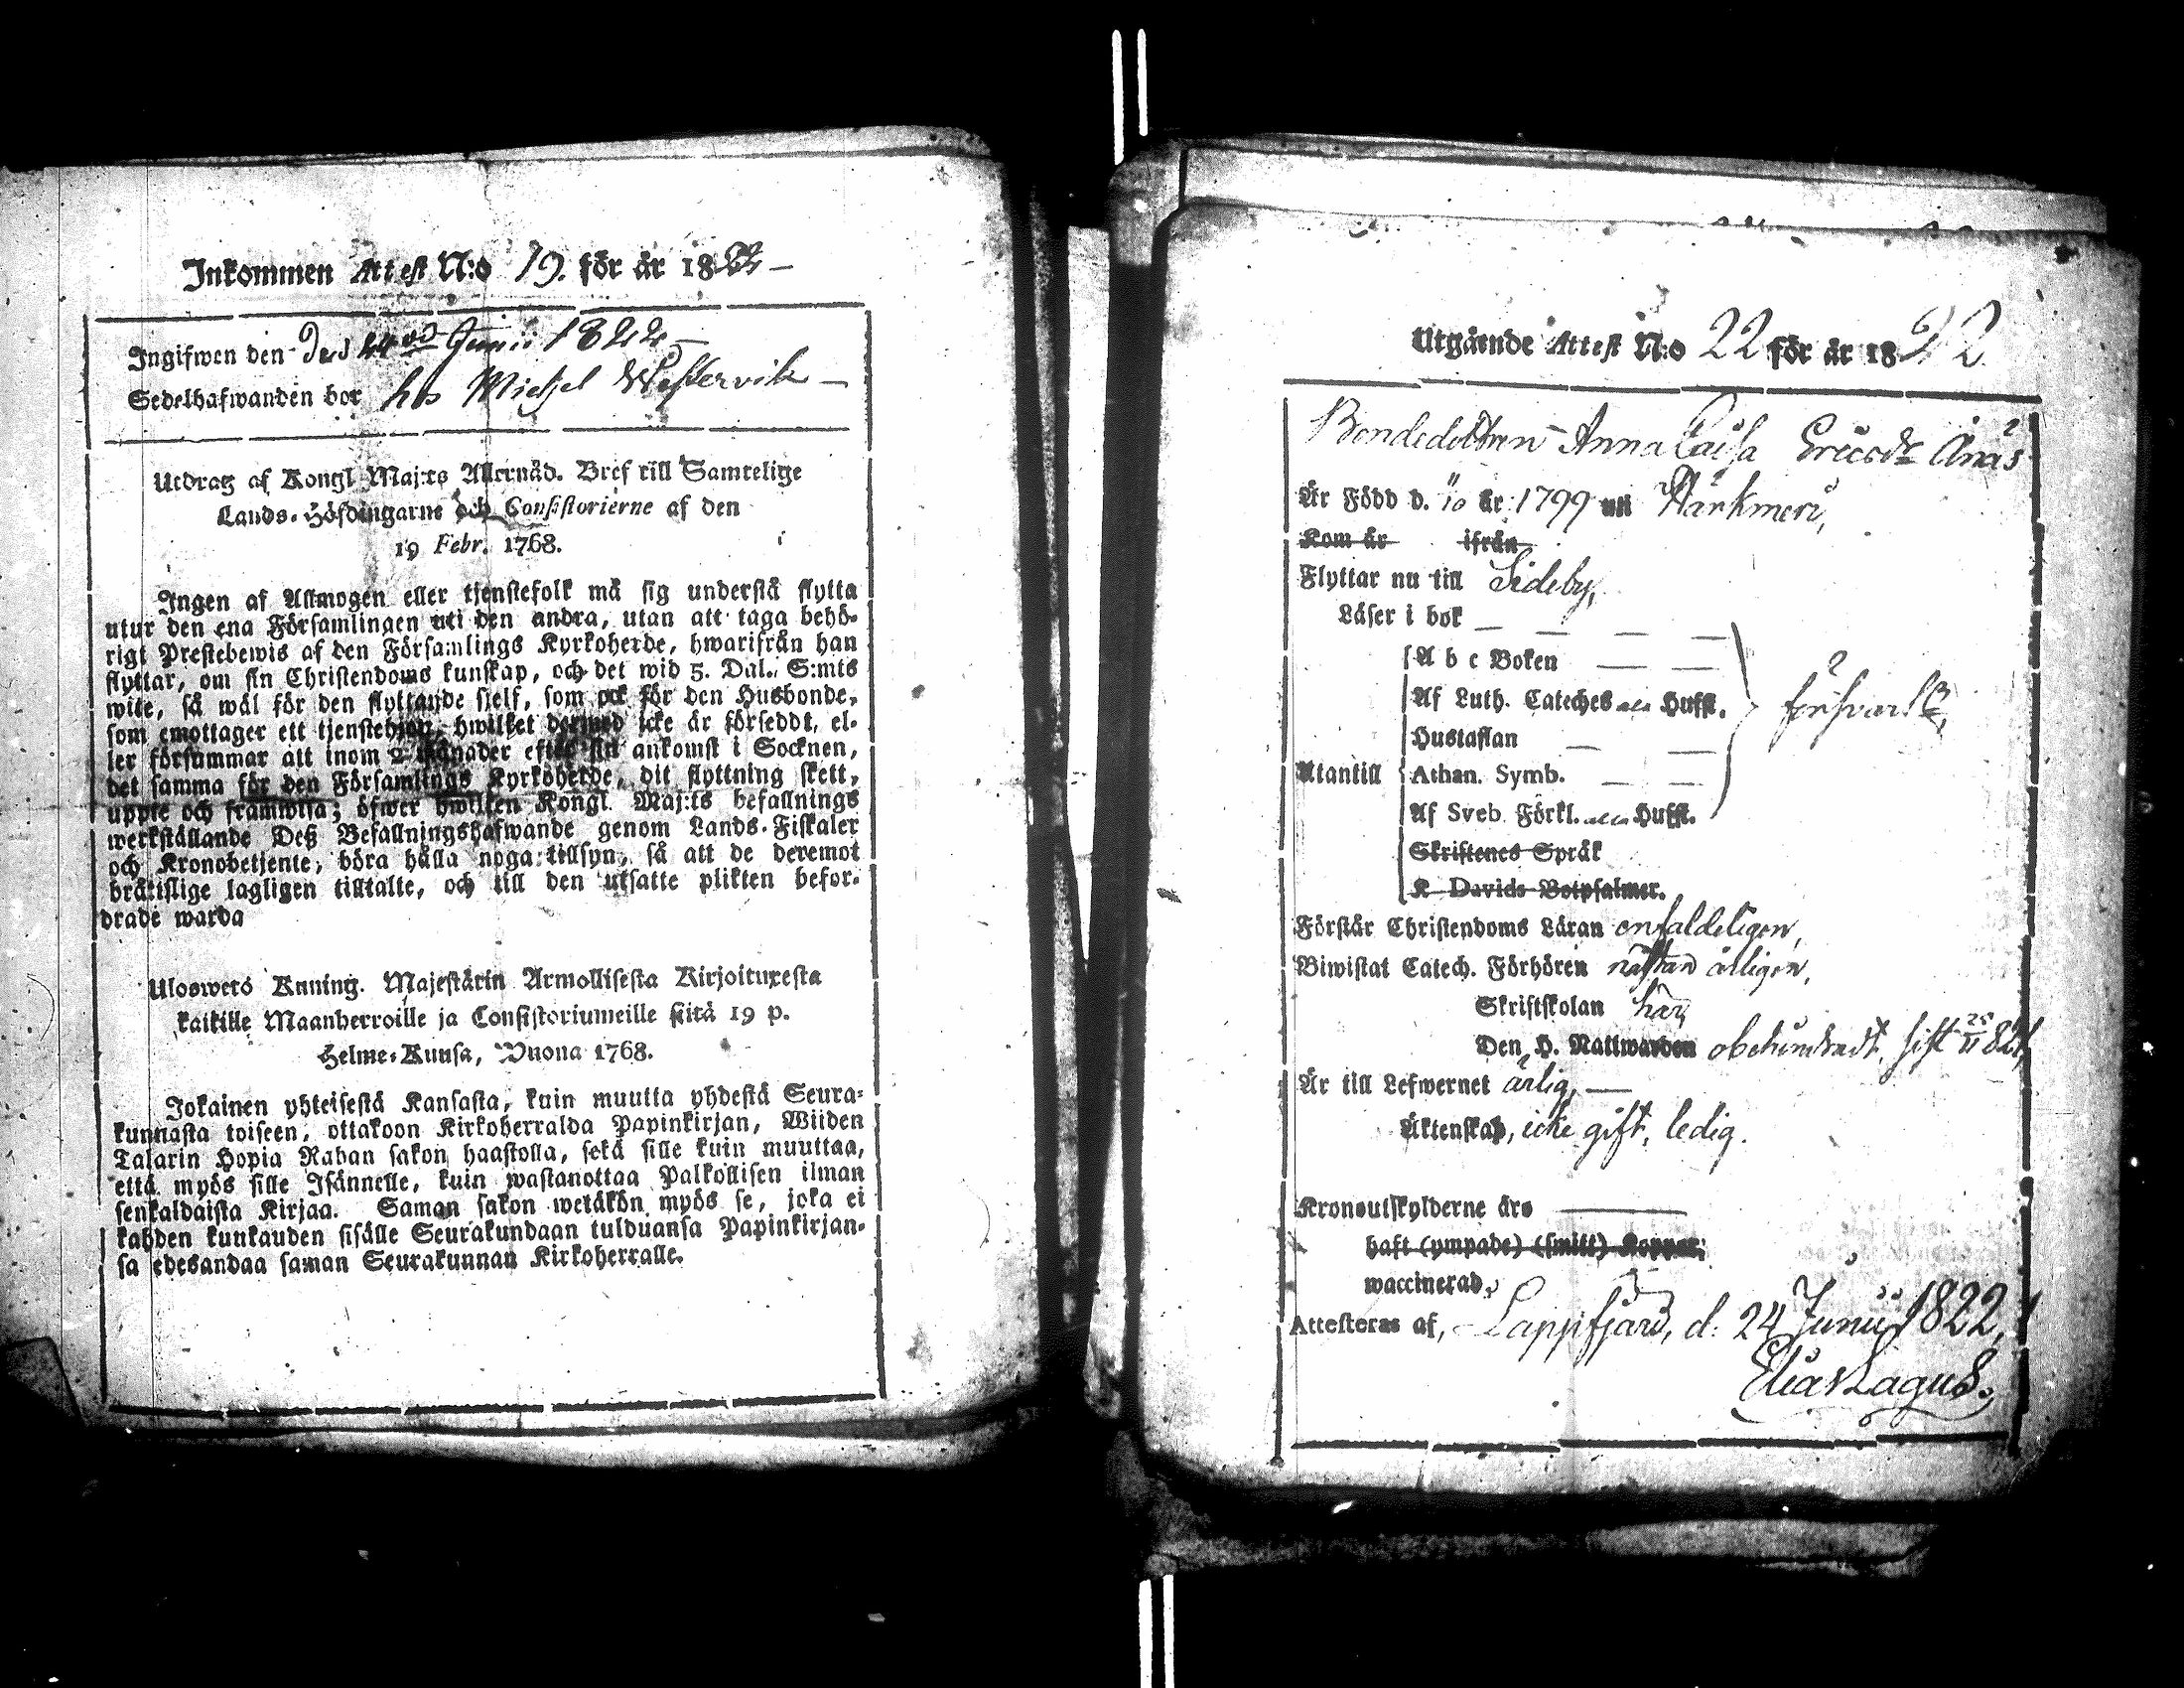 Inkommen Attest N:o 19. för år 1822 –
Ingifwen den Junii 1822 –
Sedelhafwanden bor hos Michel Westervik –
Utdrag af Kongl Maj:ts Allernåd. Bref till Samtelige
Lands-Höfdingarne och Consistorierne af den
19 Febr. 1768.
Ingen af Allmogen eller tjenstefolk må sig understå flytta
utur den ena Församlingen uti den andra, utan att taga behö-
rigt Prestebewis af den Församlings Kyrkoherde, hwarifrån han
flyttar, om sin Christendoms kunskap, och det wid 5. Dal. S:mts
wite, så wäl för den flyttande sielf, som ock för den Husbonde,
som emottager ett tjenstehjon, hwilket dermed icke är försedt, el-
ler försummar att inom 2 månader efter sin ankomst i Socknen,
det samma för den Församlings Kyrkoherde, dit flyttning skett,
uppte och framwisa; öfwer hwilken Kongl. Maj:ts befallnings
werkställande Deß Befallningshafwande genom Lands-Fiskaler
och Kronobetjente, böra hålla noga tillsyn, så att de deremot
bråtislige lagligen tilltalte, och till den utsatte plikten befor-
drade warda
Uloswets Kuning. Majestätin Armollisesta Kirjoituxesta
kaikille Maanherroille ja Consistoriumeille siitä 19 p.
Helme-Kuusa, Wuona 1768.
Jokainen yhteisestä Kansasta, kuin muutta yhdestä Seura-
kunnasta toiseen, ottakoon Kirkoherralda Papinkirjan, Wiiden
Talarin Hopia Rahan sakon haastolla, sekä sille kuin muuttaa,
että myös sille Isännelle, kuin wastanottaa Palkollisen ilman
senkaldaista Kirjaa. Saman sakon wetäkön myös se, joka ei
kahden kunkauden sisälle Seurakundaan tulduansa Papinkirjan-
sa edesandaa saman Seurakunnan Kirkoherralle.
Utgående Attest N:o 22 för år 1822
Bondedottren Anna Caisa Ericsdr Ånäs
Är Född d. 10 år 1799 uti Härkmeri,
Kom år ifrån
Flyttar nu till Sideby,
Läser i bok
A b c Boken
Af Luth. Cateches alla Hufst.
Hustaflan
Utantill Athan. Symb.
Af Sveb. Förkl. alla Hufst.
Skriftenes Språk
K Davids Botpsalmer.
Förstår Christendoms Läran enfaldeligen,
Biwistat Catech. Förhören nästan årligen,
Skriftskolan här,
Den H. Nattwarden obehindradt, sist 1821,
Är till Lefwernet ärlig, —
Äktenskap, icke gift, ledig.
Kronoutskylderne äro
haft (ympade) (smitt) Koppor,
waccinerad.
Attesteras af, Lappfjärd, d: 24 Junii 1822,
Elias Lagus.